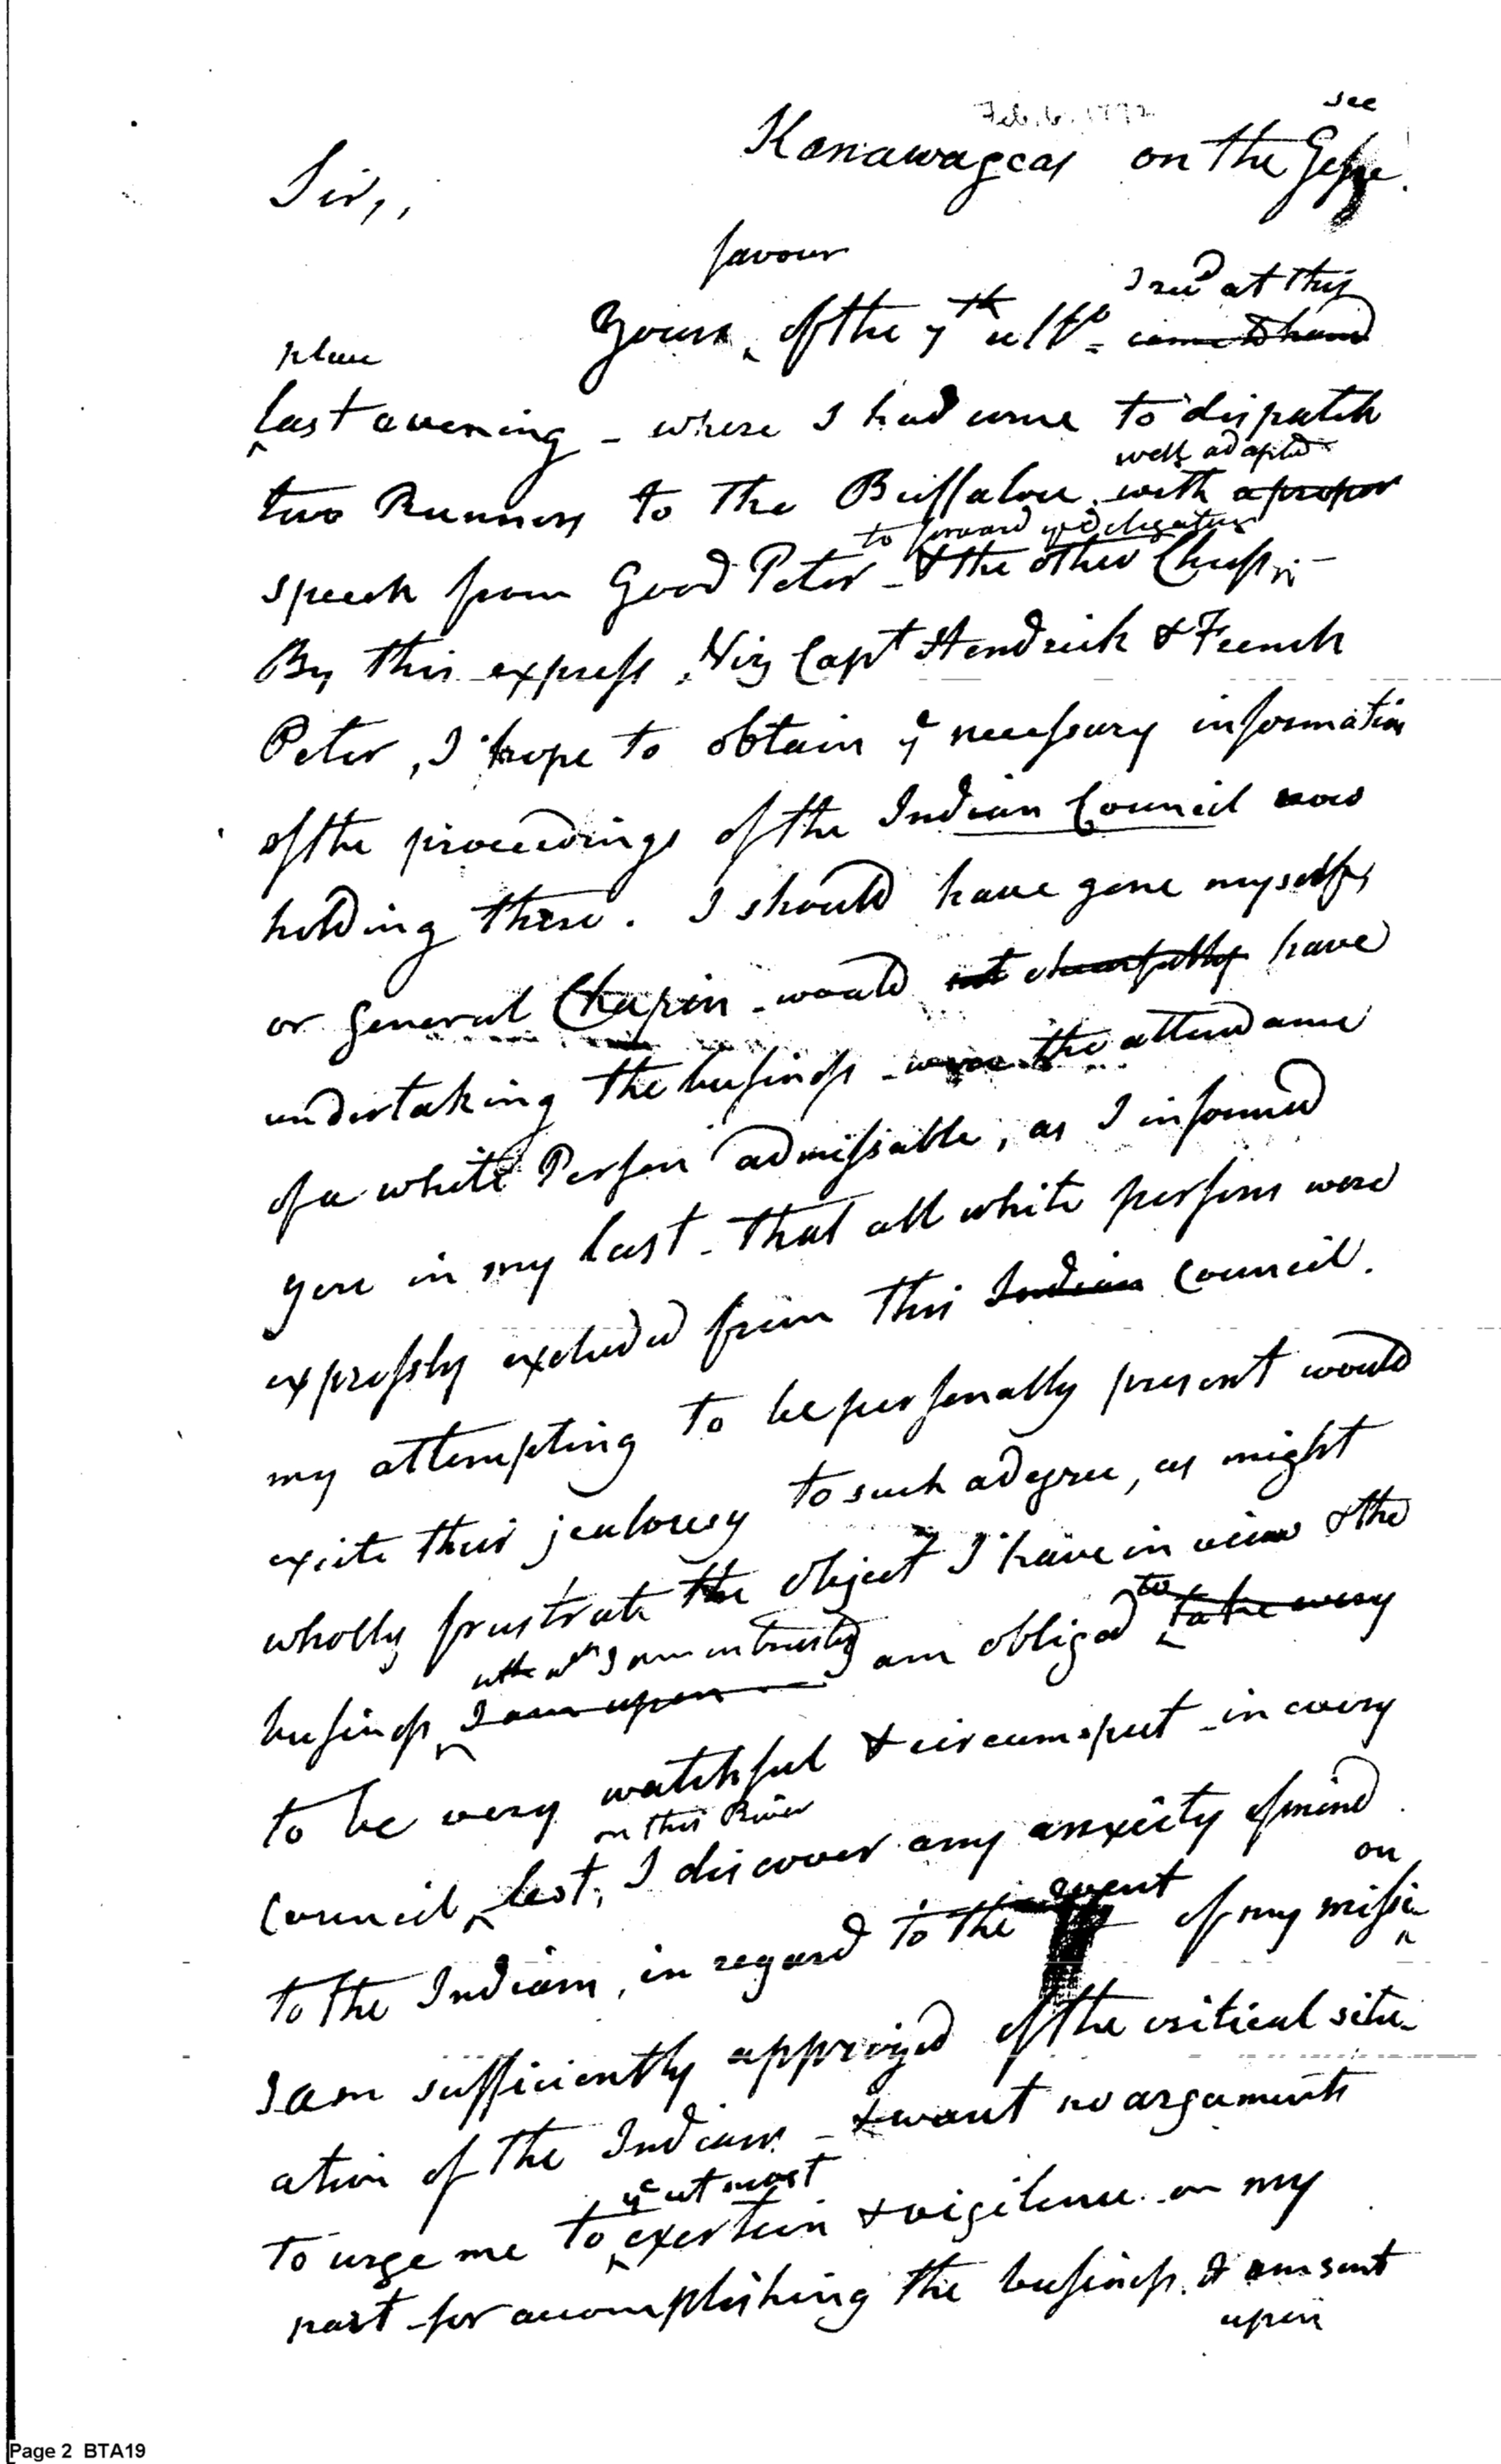 Feb. 6. 1792
see
Kanawageas on the Gesse.
Sir,,
favour
I recd at this
Yours, of the 7th ulto = came to hand
place
last evening - where I had come to dispatch
well adapted
two Runners to the Buffaloe, with a proper
to forward ye delegation
speech from Good Peter - & the other Chiefs -
By this express, Viz Capt Hendrick & French
Peter, I hope to obtain ye necessary information
of the proceedings of the Indian Council now
holding there. I should have gone myself,
or General Chapin would not chearfully have
undertaking the business - were the attendance
of a white Person admissable, as I informed
you in my last - that all white persons were
expressly excluded from this Indian Council.
my attempting to be personally present would
excite their jealousy to such a degree, as might
wholly frustrate the object I have in view & the
to
with wh I am intrusted
business, I am upon am obliged take every
to be very watchful & circumspect - in every
on this River
Council, lest, I discover any anxiety of mind
event on
to the Indians, in regard to the of my missi
I am sufficiently apprized of the critical situ-
ation of the Indians - & want no arguments
ye utmost
to urge me to exertion & vigilence on my
part - for accomplishing the business. I am sent
upon
Page 2 BTA19